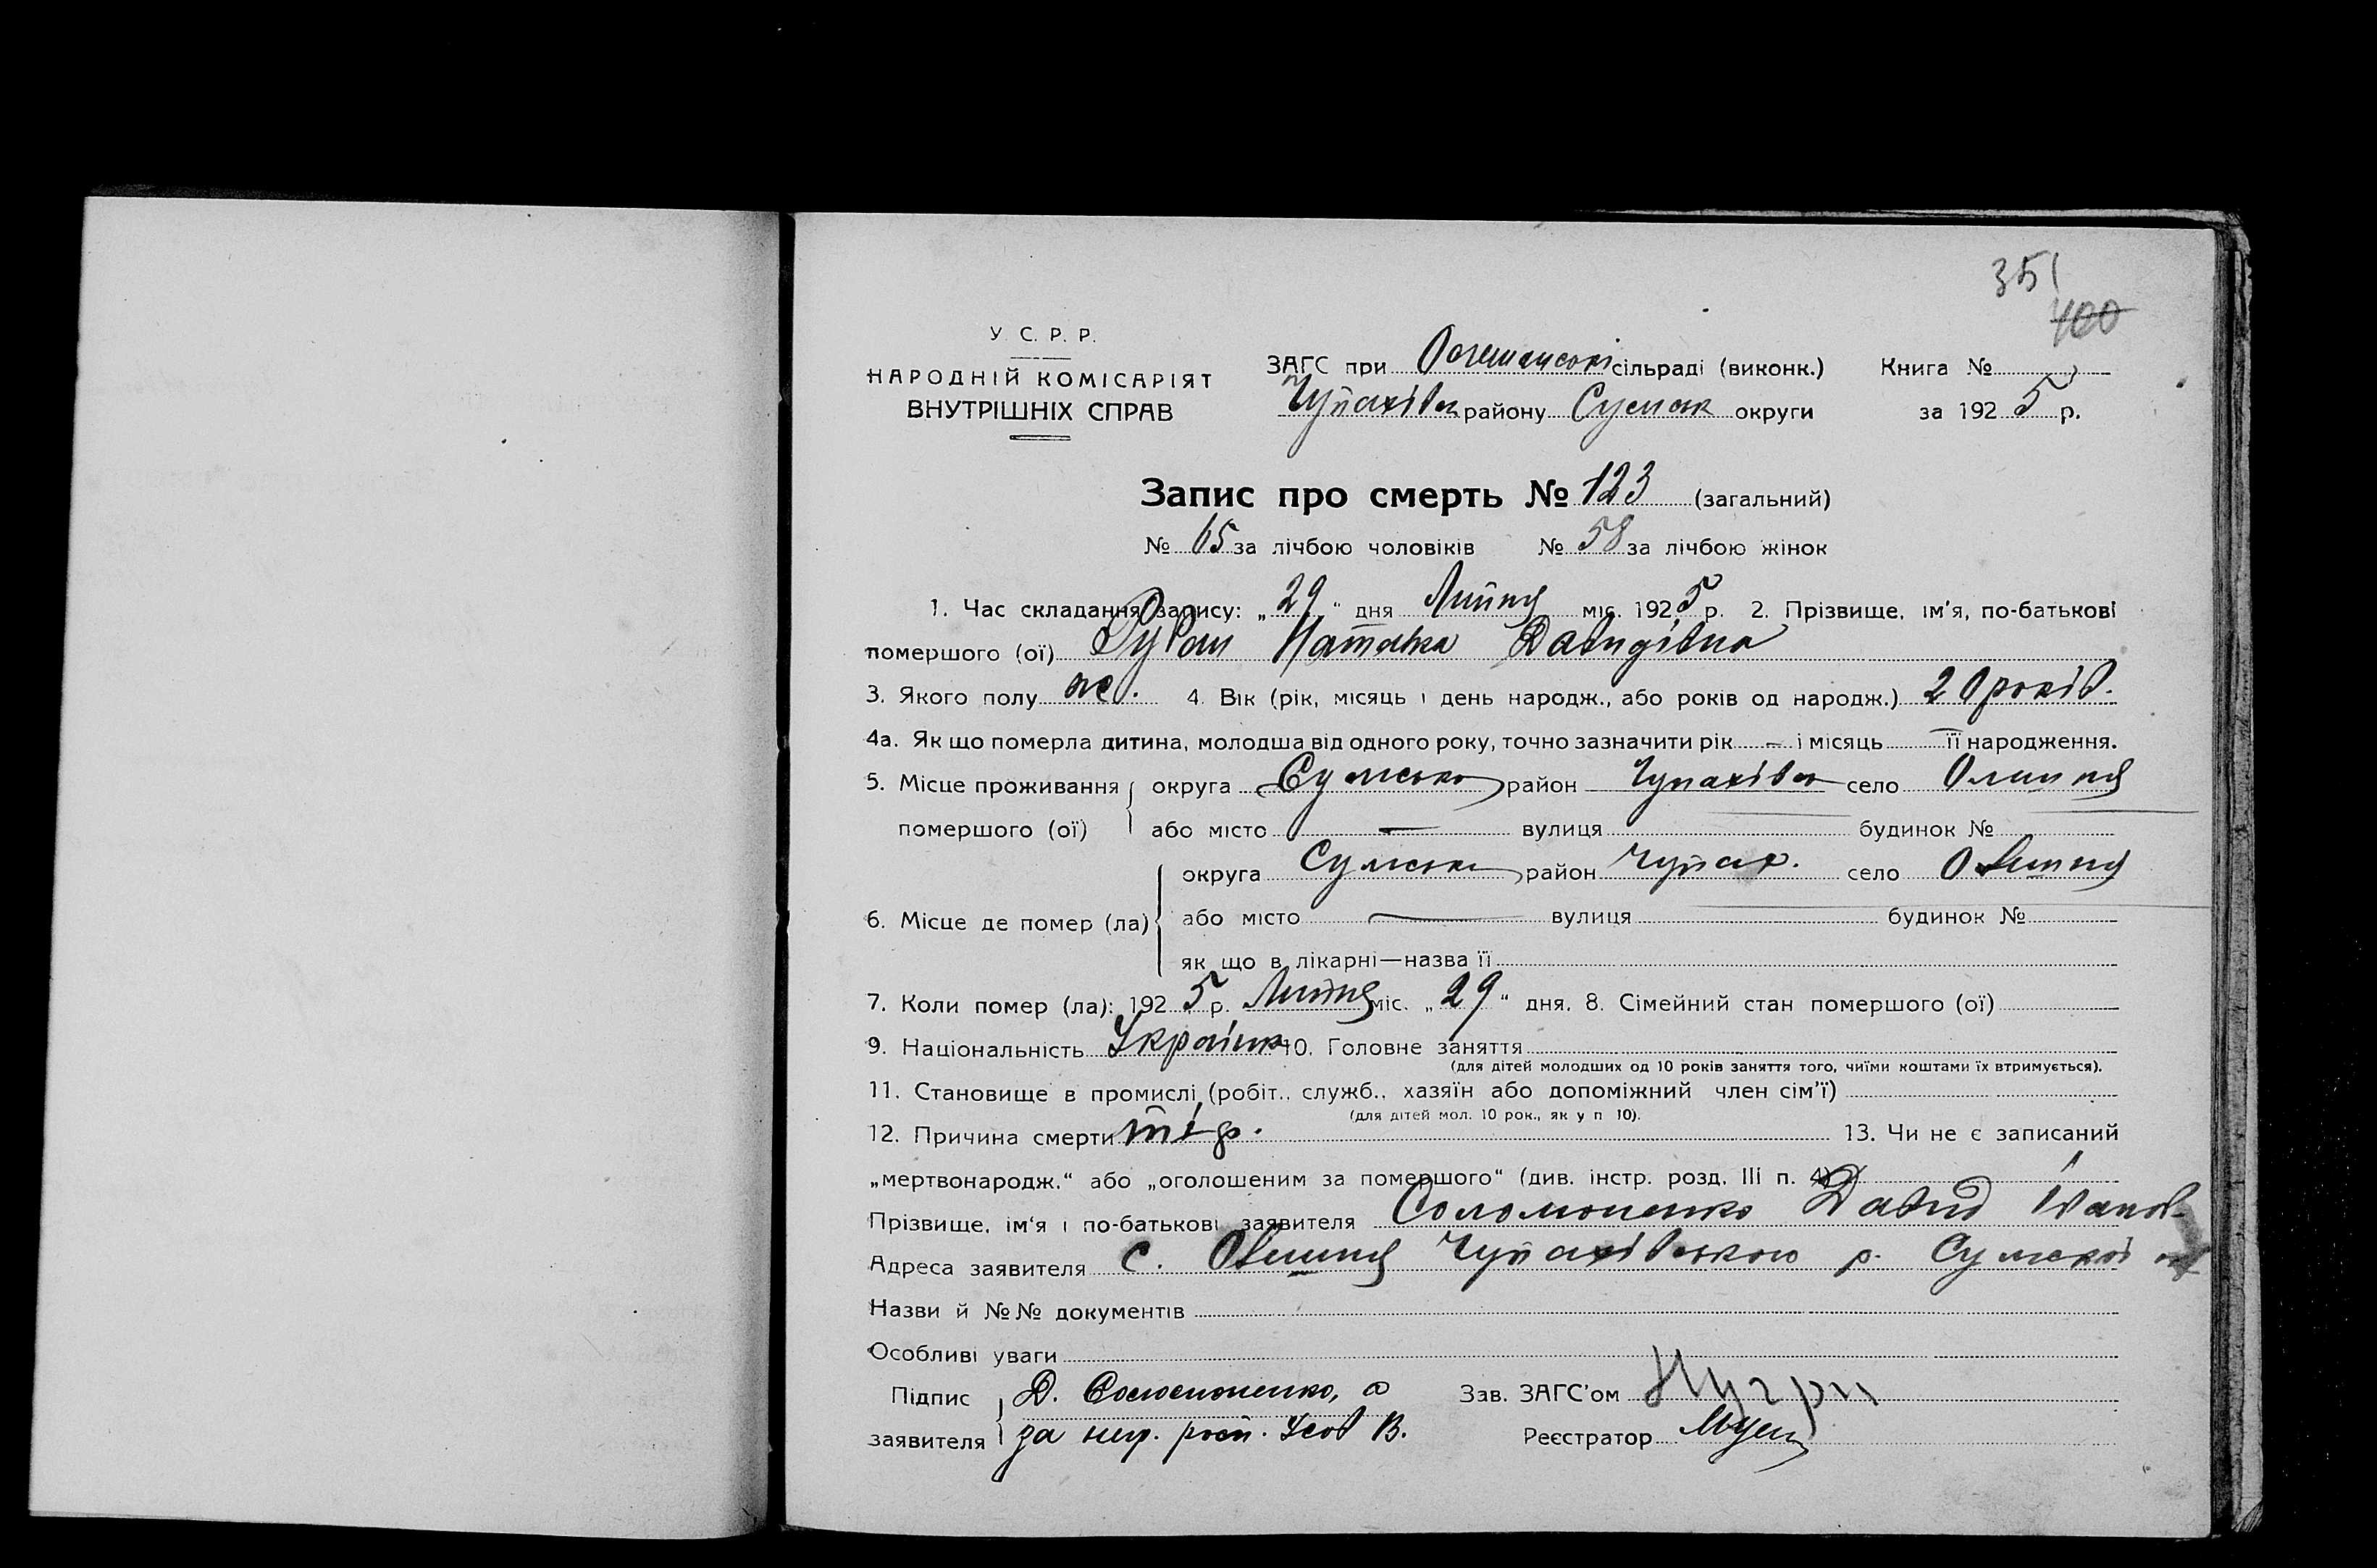 351
400
У. С. Р. Р.
НАРОДНІЙ КОМІСАРІЯТ
ВНУТРІШНІХ СПРАВ
ЗАГС при Олешанські сільраді (виконк.) Книга №
Чупахівск району Сумськ округи за 1925 р.
Запис про смерть № 123 (загальний)
№ 65 за лічбою чоловіків № 58 за лічбою жінок
1. Час складання запису: „29“ дня Липня міс. 1925 р. 2. Прізвище, ім'я, по-батькові
помершого (ої) Наталка Давидівна
3. Якого полу ж. 4. Вік (рік, місяць і день народж., або років од народж.) 20 років.
4а. Як що померла дитина, молодша від одного року, точно зазначити рік — і місяць — її народження.
5. Місце проживання округа Сумська район Чупахівск село Олешня
помершого (ої) або місто — вулиця будинок №
округа Сумська район Чупах. село Олешня
6. Місце де помер (ла) або місто — вулиця будинок №
як що в лікарні—назва її
7. Коли помер (ла): 1925 р. Липня міс. „29“ дня. 8. Сімейний стан помершого (ої)
9. Національність Українк 10. Головне заняття
(для дітей молодших од 10 років заняття того, чиїми коштами їх втримується).
11. Становище в промислі (робіт., служб., хазяїн або допоміжний член сім'ї)
(для дітей мол. 10 рок., як у п 10).
12. Причина смерти тіф. 13. Чи не є записаний
„мертвонародж.“ або „оголошеним за помершого“ (див. інстр. розд. III п. 4)
Прізвище, ім'я і по-батькові заявителя Соломоненко Давид Іванов.
Адреса заявителя с. Олешня Чупахівського р. Сумскої ок
Назви й №№ документів
Особливі уваги
Підпис Д. Соломоненко, а Зав. ЗАГС'ом
заявителя за негр. росп. Усов В. Реєстратор